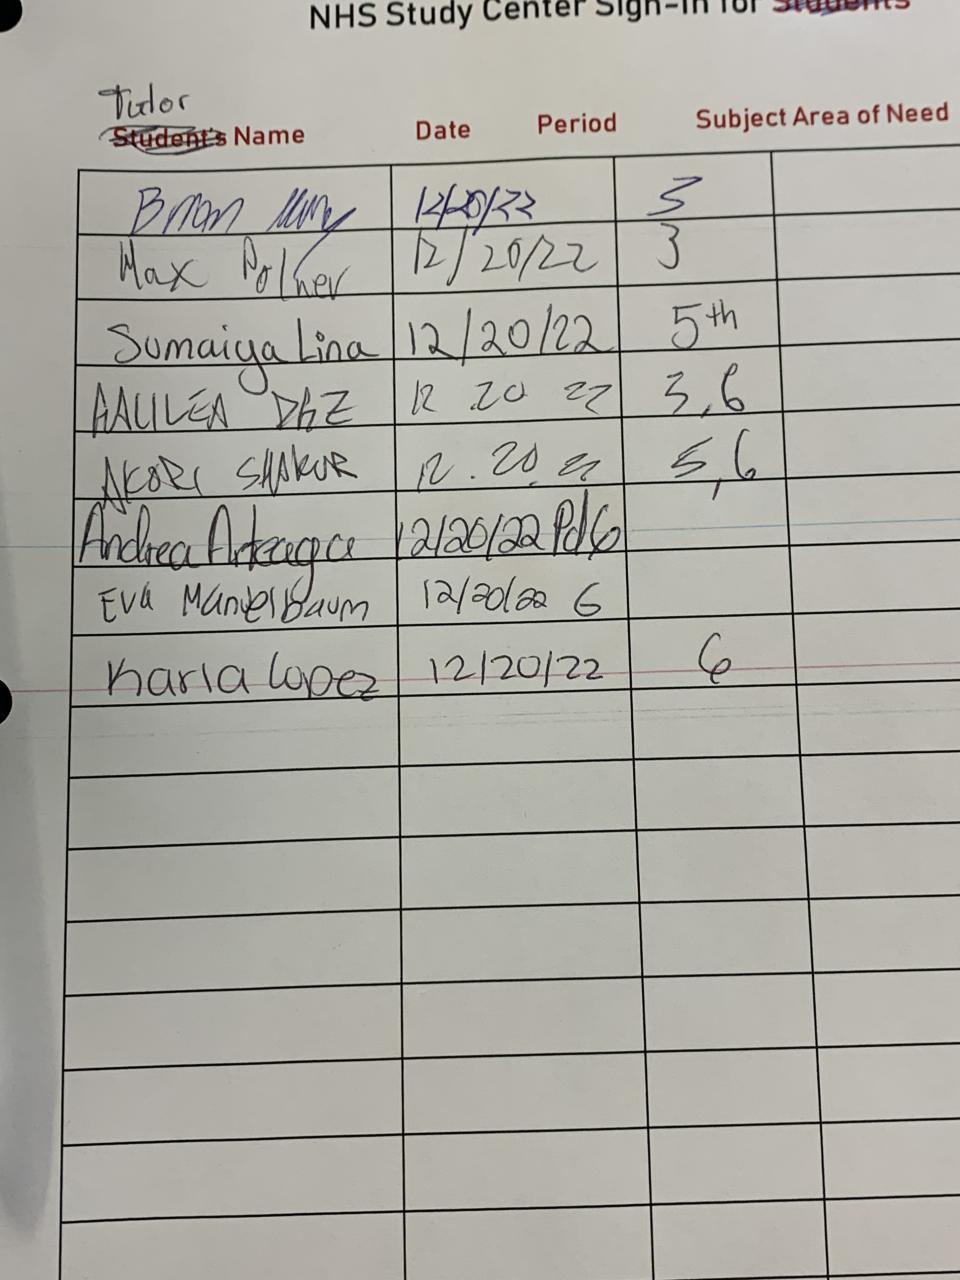 NHS Study Center Sign-In for Students
Tutor
Student's Name Date Period Subject Area of Need
Brian 12/20/22 3
Max 12/20/22 3
Sumaiya Lina 12/20/22 5th
12 20 22 3,6
AKORI SHAKUR 12.20.22 5,6
Andrea Arteaga 12/20/22 Pd 6
Eva Mandelbaum 12/20/22 6
Karla Lopez 12/20/22 6